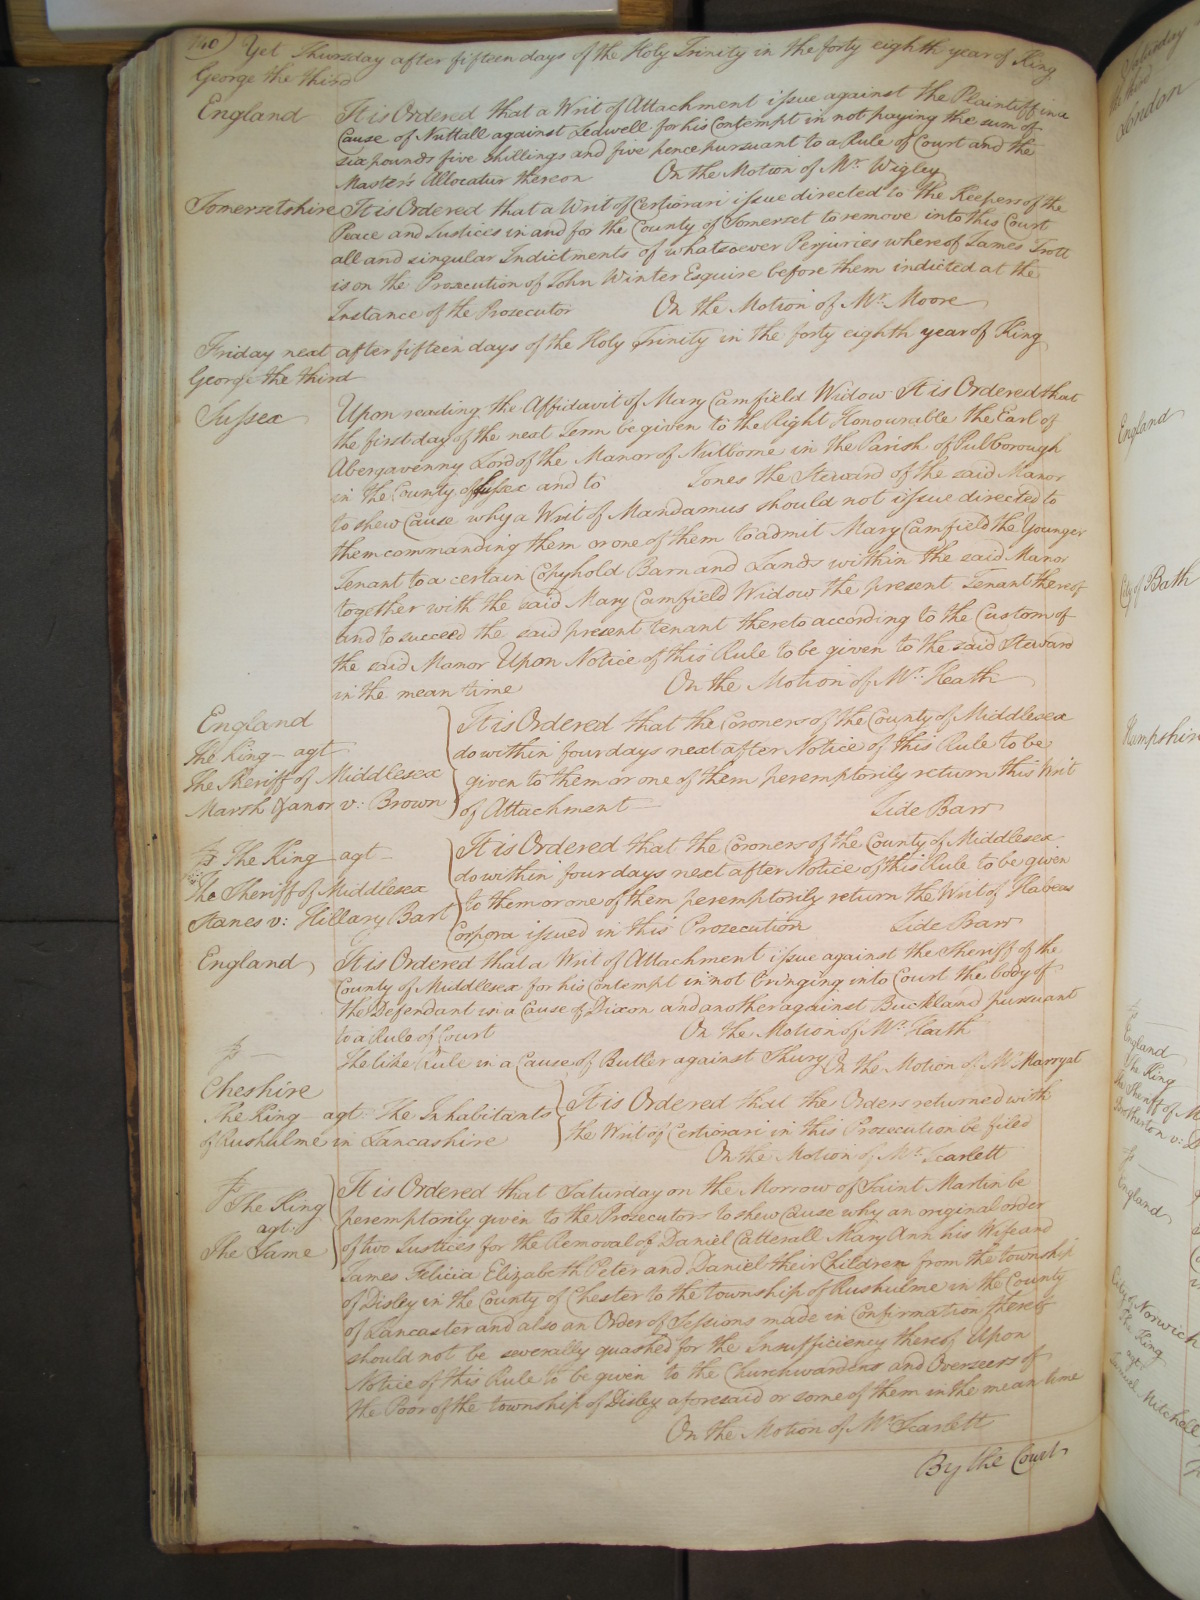 140) Yet Thursday after fifteen days of the Holy Trinity in the forty eighth year of King
George the third
England It is Ordered that a Writ of Attachment issue against the Plaintiff in a
Cause of Nuttall against Ledwell for his Contempt in not paying the sum of
six pounds five shillings and five pence pursuant to a Rule of Court and the
Master's Allocatur thereon On the Motion of Mr. Wigley
Somersetshire It is Ordered that a Writ of Certiorari issue directed to the Keepers of the
Peace and Justices in and for the County of Somerset to remove into this Court
all and singular Indictments of whatsoever Perjuries whereof James Trott
is on the Prosecution of John Winter Esquire before them indicted at the
Instance of the Prosecutor On the Motion of Mr. Moore
Friday next after fifteen days of the Holy Trinity in the forty eighth year of King
George the third
Sussex Upon reading the Affidavit of Mary Camfield Widow It is Ordered that
the first day of the next Term be given to the Right Honourable the Earl of
Abergavenny Lord of the Manor of Nutborne in the Parish of Pulborough
in the County of Sussex and to Jones the Steward of the said Manor
to shew Cause why a Writ of Mandamus should not issue directed to
them commanding them or one of them to admit Mary Camfield the Younger
Tenant to a certain Copyhold Barn and Lands within the said Manor
together with the said Mary Camfield Widow the present Tenant thereof
and to succeed the said present tenant thereto according to the Custom of
the said Manor Upon Notice of this Rule to be given to the said Steward
in the mean time On the Motion of Mr. Heath
England
The King agt
The Sheriff of Middlesex
Marsh & anor v: Brown
It is Ordered that the Coroners of the County of Middlesex
do within four days next after Notice of this Rule to be
given to them or one of them peremptorily return this Writ
of Attachment Side Barr
The King agt
The Sheriff of Middlesex
Stanes v: Hillary Bart
It is Ordered that the Coroners of the County of Middlesex
do within four days next after Notice of this Rule to be given
to them or one of them peremptorily return the Writ of Habeas
Corpora issued in this Prosecution Side Barr
England It is Ordered that a Writ of Attachment issue against the Sheriff of the
County of Middlesex for his Contempt in not bringing into Court the body of
the Defendant in a Cause of Dixon and another against Buckland pursuant
to a Rule of Court On the Motion of Mr. Heath
The like Rule in a Cause of Butler against Thury On the Motion of Mr. Marryat
Cheshire
The King agt The Inhabitants
of Rushulme in Lancashire
It is Ordered that the Orders returned with
the Writ of Certiorari in this Prosecution be filed
On the Motion of Mr. Scarlett
The King
agt:
The Same
It is Ordered that Saturday on the Morrow of Saint Martin be
peremptorily given to the Prosecutors to shew Cause why an original order
of two Justices for the Removal of Daniel Catterall Mary Ann his Wife and
James Felicia Elizabeth Peter and Daniel their Children from the township
of Disley in the County of Chester to the township of Rushulme in the County
of Lancaster and also an Order of Sessions made in Confirmation thereof
should not be severally quashed for the Insufficiency thereof Upon
Notice of this Rule to be given to the Churchwardens and Overseers of
the Poor of the township of Disley aforesaid or some of them in the mean time
On the Motion of Mr Scarlett
By the Court
Saturday
the third
London
England
City of Bath
Hampshire
England
The King
the Sheriff of M
England
City of Norwich
The King
agt
Samuel Mitchell